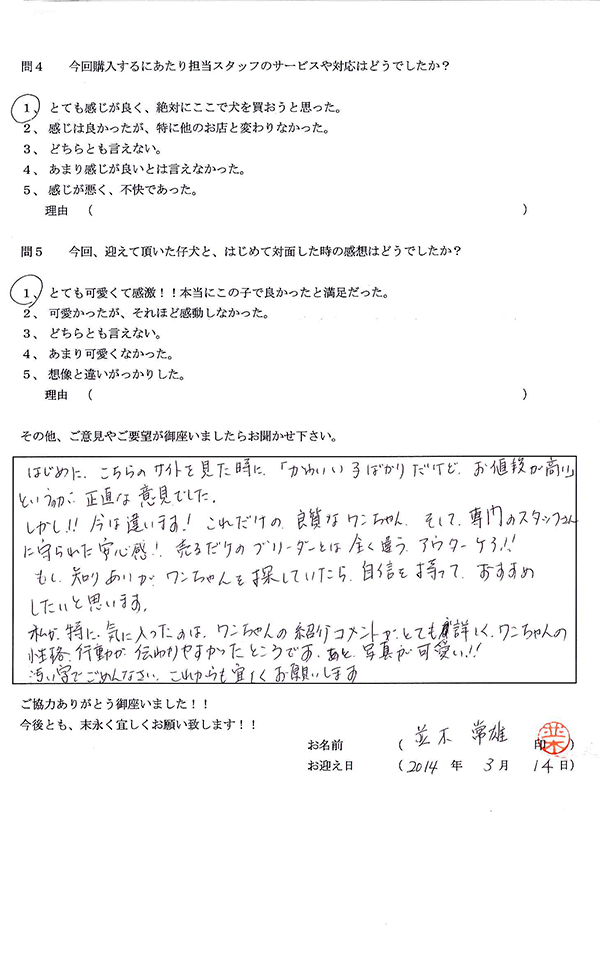 問４　今回購入するにあたり担当スタッフのサービスや対応はどうでしたか？
１、とても感じが良く、絶対にここで犬を買おうと思った。
２、感じは良かったが、特に他のお店と変わりなかった。
３、どちらとも言えない。
４、あまり感じが良いとは言えなかった。
５、感じが悪く、不快であった。
理由　（　　　）
問５　今回、迎えて頂いた仔犬と、はじめて対面した時の感想はどうでしたか？
１、とても可愛くて感激！！本当にこの子で良かったと満足だった。
２、可愛かったが、それほど感動しなかった。
３、どちらとも言えない。
４、あまり可愛くなかった。
５、想像と違いがっかりした。
理由　（　　　）
その他、ご意見やご要望が御座いましたらお聞かせ下さい。
はじめに、こちらのサイトを見た時に、「かわいい子ばかりだけど、お値段が高い」
というのが、正直な意見でした。
しかし!! 今は違います! これだけの、良質なワンちゃん、そして、専門のスタッフさん
に守られた安心感! 売るだけのブリーダーとは全く違う、アフターケア!!
もし、知りあいが、ワンちゃんを探していたら、自信を持って、おすすめ
したいと思います。
私が、特に気に入ったのは、ワンちゃんの紹介コメントが、とても詳しく、ワンちゃんの
性格、行動が、伝わりやすかったところです。あと、写真が可愛い!!
汚い字でごめんなさい。これからも宜しくお願いします
ご協力ありがとう御座いました！！
今後とも、末永く宜しくお願い致します！！
お名前　（　並木　常雄　印　）
お迎え日　（2014 年　3 月　14 日）